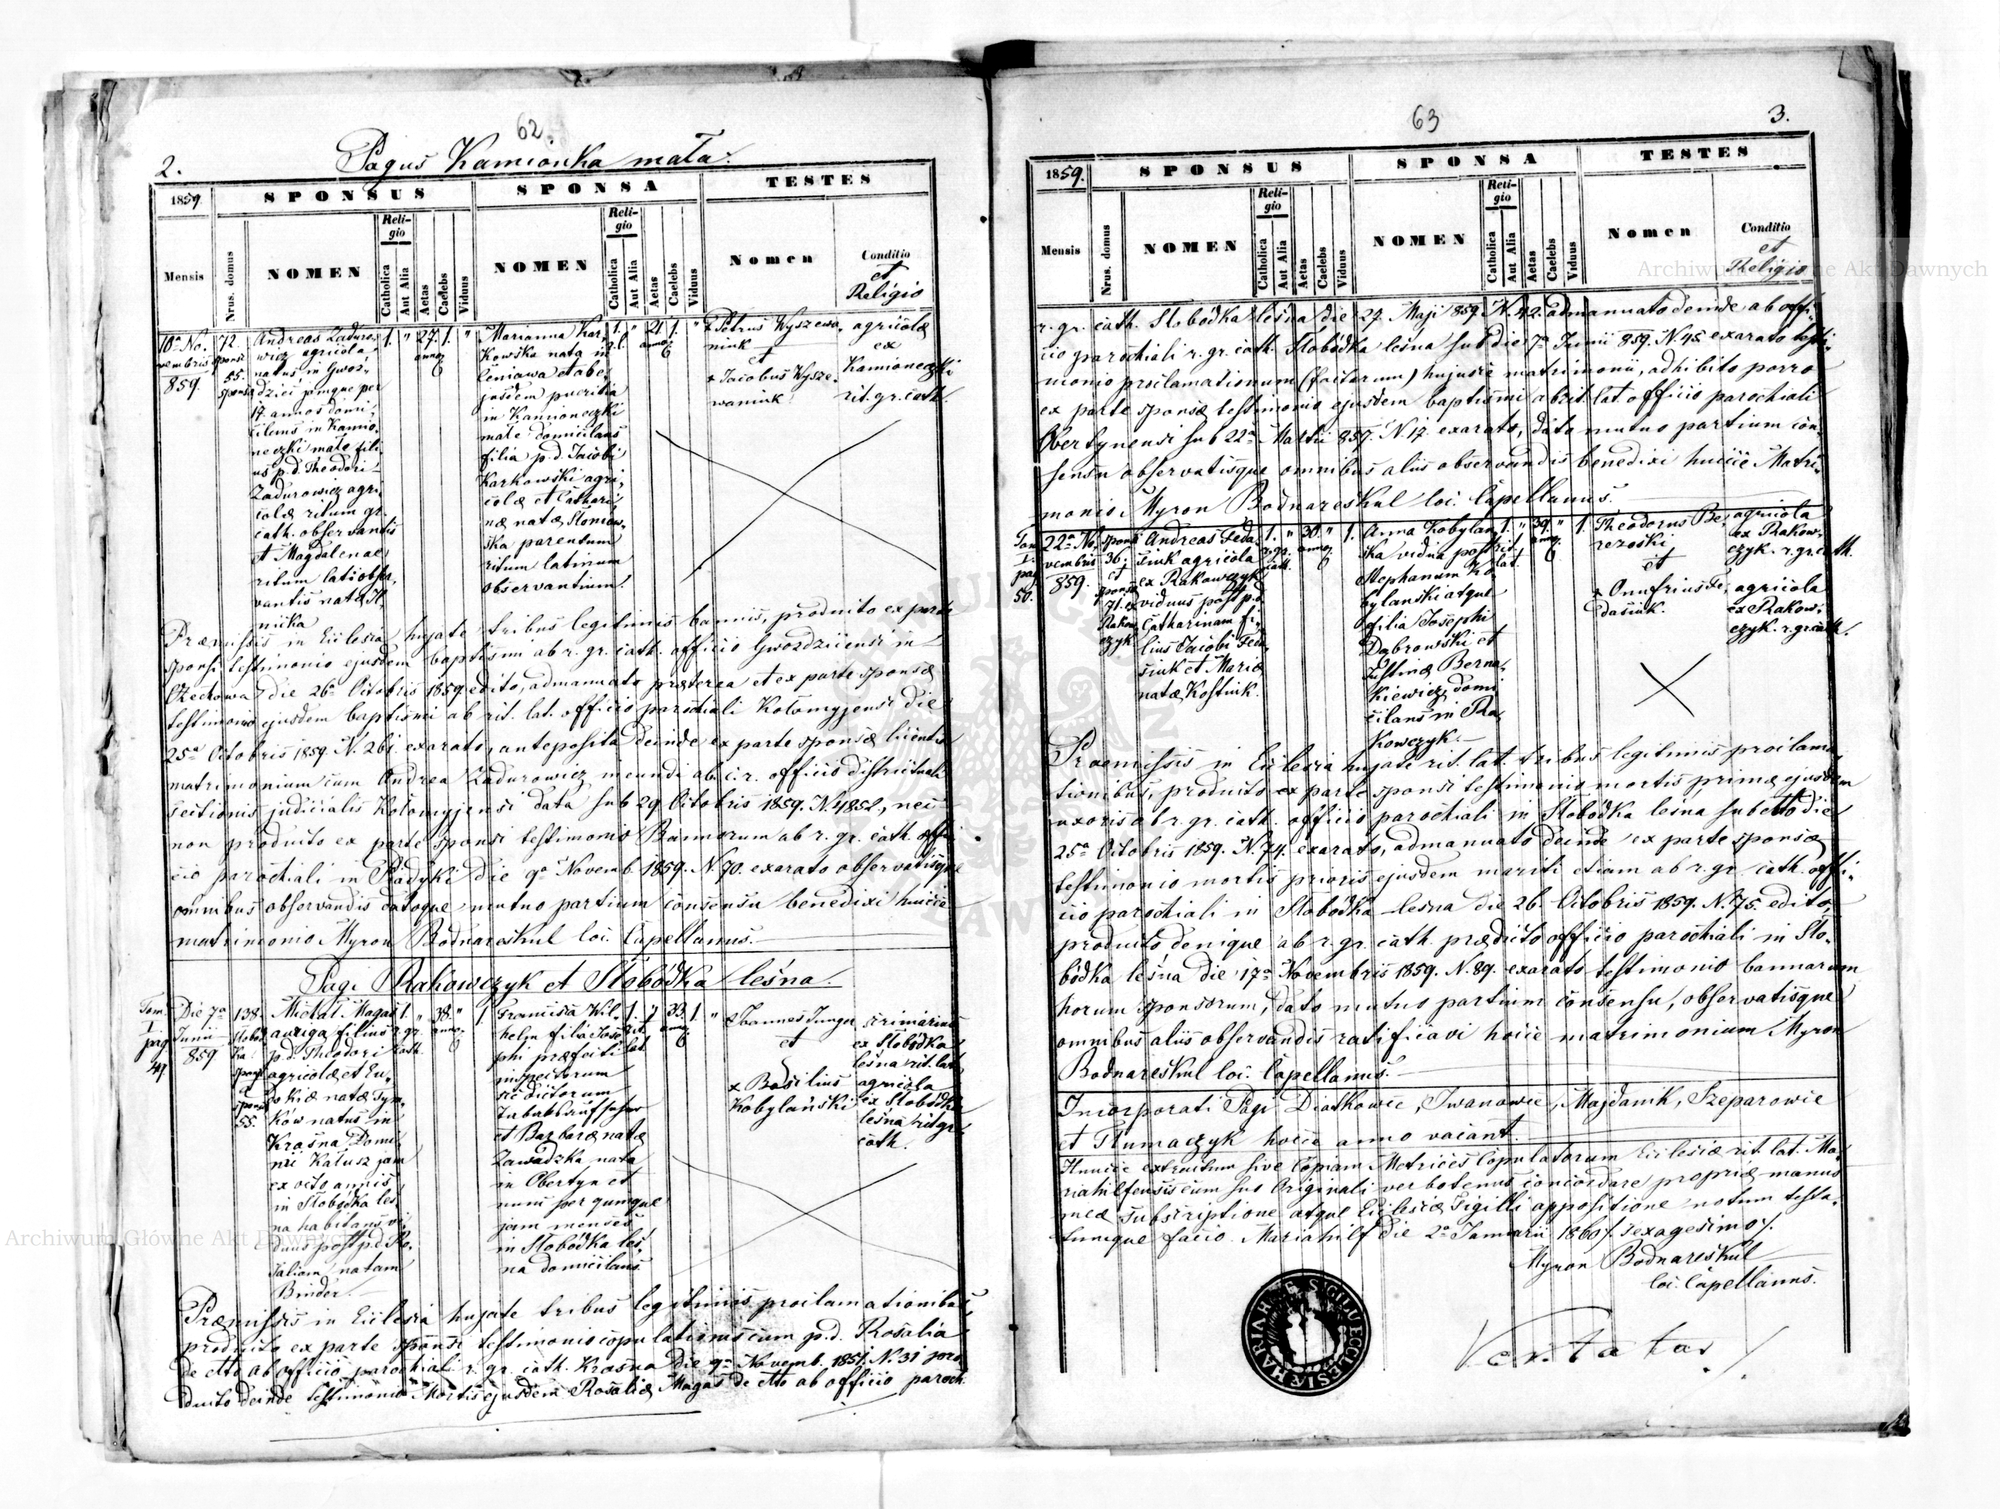 62.
2.
Pagus Kamionka mała.
1859.
SPONSUS
SPONSA
TESTES
Mensis
Nrus. domus
NOMEN
Religio
Catholica
Aut Alia
Aetas
Caelebs
Viduus
NOMEN
Religio
Catholica
Aut Alia
Aetas
Caelebs
Viduus
Nomen
Conditio
et
Religio
10a No.
vembris
859.
72.
sponsi
55.
sponsæ
Andreas Zaduro.
wicz agricola,
natus in Gwoz.
dzici
17. annos domi.
cilans in Kamio.
neczki małe fili.
us p.d. Theodori
Zadurowicz agri.
colæ ritum gr.
cath. observantis
et Magdalenæ
ritum lat. obser.
vantis natæ H.
nicka
1.
"
27.
anno.
1.
"
Marianna Kar.
kowska nata in
Ceniawa et abe.
josdem pueritia
in Kamioneczki
małe domicilans
filia p.d. Jacobi
Karkowski agri.
colæ et Cathari.
næ natæ Słoniow.
ska parentum
ritum latinum
observantium.
1.
r.l.
"
21.
anno.
1.
"
+ Petrus Wyszewa.
niuk
et
+ Jacobus Wysze.
waniuk.
agricolæ
ex
Kamioneczki
rit. gr. cath.
Præmissis in Ecclesia hujate tribus legitimis bannis, producto ex parte
sponsi testimonio ejusdem baptismi ab r. gr. cath. officio Gwozdziecensi in
die 26a Octobris 1859 edito, admanuato præterea et ex parte sponsæ
testimonio ejusdem baptismi ab rit. lat. officio parochiali Kołomyjensi die
25a Octobris 1859. N. 261. exarato, anteposita deinde ex parte sponsæ licentia
matrimonium cum Andrea Zadurowicz ineundi ab c. r. officio districtuali
sectionis judicialis Kołomyjensi data sub 29 Octobris 1859. N. 4852, nec
non producto ex parte sponsi testimonio Bannorum ab r. gr. cath. offi.
cio parochiali in Pádyki die 9a Novemb. 1859. N. 70. exarato observatisque
omnibus observandis datoque mutuo partium consensu benedixi huicce
matrimonio Myron Bodnareskul loc. Capellanus.
Pagi Rakowczyk et Słobódka leśna.
Tom.
I
pag
49
Die 7a
Junii
859
138.
sponsi
et
sponsæ
55.
Michał Magas
auriga filius
p.d. Theodori
agricolæ et Eu.
dokiæ natæ Sym.
ków natus in
Krasna Domi.
nii Kałusz jam
ex octo annis
in Słobódka leś.
na habitans vi.
duus post p.d. Ro.
saliam natam
Binder
1.
r. gr.
cath.
"
38.
anno.
"
1.
Francisca Wil.
helm filia Jose.
phi præfecti
inspectorum
sic dictorum
Tabakaufseher
et Barbaræ natæ
Zawadzka nata
in Obertyn et
nunc per quinque
jam menses
in Słobódka leś.
na domicilans
1.
rit.
lat.
"
33.
anno.
1.
"
Joannes Junga
et
+ Basilius
Kobylański
scriniarius
ex Słobódka
leśna rit. lat.
agricola
ex Słobódka
leśna rit. gr.
cath.
Præmissis in Ecclesia hujate tribus legitimis proclamationibus,
producto ex parte sponsi testimonio copulationis cum p.d. Rosalia
de dto ab officio parochiali r. gr. cath. Krasna die 9a Novemb. 1851. N. 31 pro.
ducto deinde testimonio Mortis ejusdem Rosaliæ Magas de dto ab officio paroch.
63
3.
1859.
SPONSUS
SPONSA
TESTES
Mensis
Nrus. domus
NOMEN
Religio
Catholica
Aut Alia
Aetas
Caelebs
Viduus
NOMEN
Religio
Catholica
Aut Alia
Aetas
Caelebs
Viduus
Nomen
Conditio
et
Religio
r. gr. cath. Słobódka leśna die 27. Maji 859. N. 42. admanuato deinde ab offi.
cio parochiali r. gr. cath. Słobódka leśna sub die 7a Junii 859. N. 45. exarato testi.
monio proclamationum (factarum) hujusce matrimonii, adhibito porro
ex parte sponsæ testimonio ejusdem baptismi ab rit. lat. officio parochiali
Obertynensi sub 22a Martii 857. N. 17. exarato, dato mutuo partium con.
sensu observatisque omnibus aliis observandis benedixi huicce Matri.
monio Myron Bodnareskul loc. Capellanus.
Tom.
I.
pag
50.
22a No.
vembris
859.
sponsi
36.
et
sponsæ
71. ex
Rakow
czyk
Andreas Feda.
siuk agricola
ex Rakowczyk
viduus post p.d.
Catharinam fi.
lius Jacobi Feda.
siuk et Mariæ
natæ Kostiuk.
1.
r. gr.
cath.
"
30.
anno.
"
1.
Anna Kobylan.
ska vidua post
Stephanum Ko.
bylanski atque
filia Josephi
Dąbrowski et
Justinæ Berna.
kiewicz domi
cilans in Ra.
kowczyk.
1.
rit.
lat.
"
39.
anno.
"
1.
Theodorus Be.
rezoski
et
+ Onufrius Fe.
dasiuk.
agricola
ex Rakow.
czyk. r. gr. cath.
agricola
ex Rakow.
czyk. r. gr. cath.
Præmissis in Ecclesia hujate rit. lat. tribus legitimis proclama.
tionibus, producto ex parte sponsi testimonio mortis primæ ejusdem
uxoris ab r. gr. cath. officio parochiali in Słobódka leśna sub dto die
25a Octobris 1859. N. 74. exarato, admanuato deinde ex parte sponsæ
testimonio mortis prioris ejusdem mariti etiam ab r. gr. cath. offi.
cio parochiali in Słobódka leśna die 26. Octobris 1859. N. 75. edito,
producto denique ab r. gr. cath. prædicto officio parochiali in Sło.
bódka leśna die 17a Novembris 1859. N. 89. exarato testimonio bannorum
horum sponsorum, dato mutuo partium consensu, observatisque
omnibus aliis observandis ratificavi hocce matrimonium Myron
Bodnareskul loc. Capellanus.
Incorporati Pagi Diatkowce, Iwanowce, Majdanik, Szeparowce
et Tłumaczyk hocce anno vacant.
Huncce extractum sive Copiam Metrices Copulatorum Ecclesiæ rit. lat. Ma.
riahilfensis cum suo Originali verbotenus concordare propriæ manus
meæ subscriptione atque Ecclesiæ Sigilli appositione notum testa.
tumque facio. Mariahilf die 2a Januarii 1860 /: sexagesimo :/.
Myron Bodnareskul
loc. Capellanus.
SIGILLU ECCLESIÆ MARIAHILF
Vertatur /
Archiwum Główne Akt Dawnych
Archiwum Główne Akt Dawnych